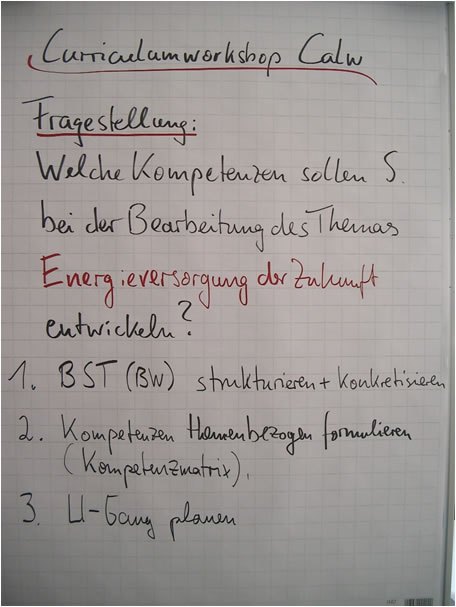 Curriculumworkshop Calw
Fragestellung:
Welche Kompetenzen sollen S.
bei der Bearbeitung des Themas
Energieversorgung der Zukunft
entwickeln?
1. BST (BW) strukturieren + konkretisieren
2. Kompetenzen themenbezogen formulieren
(Kompetenzmatrix),
3. U-Gang planen